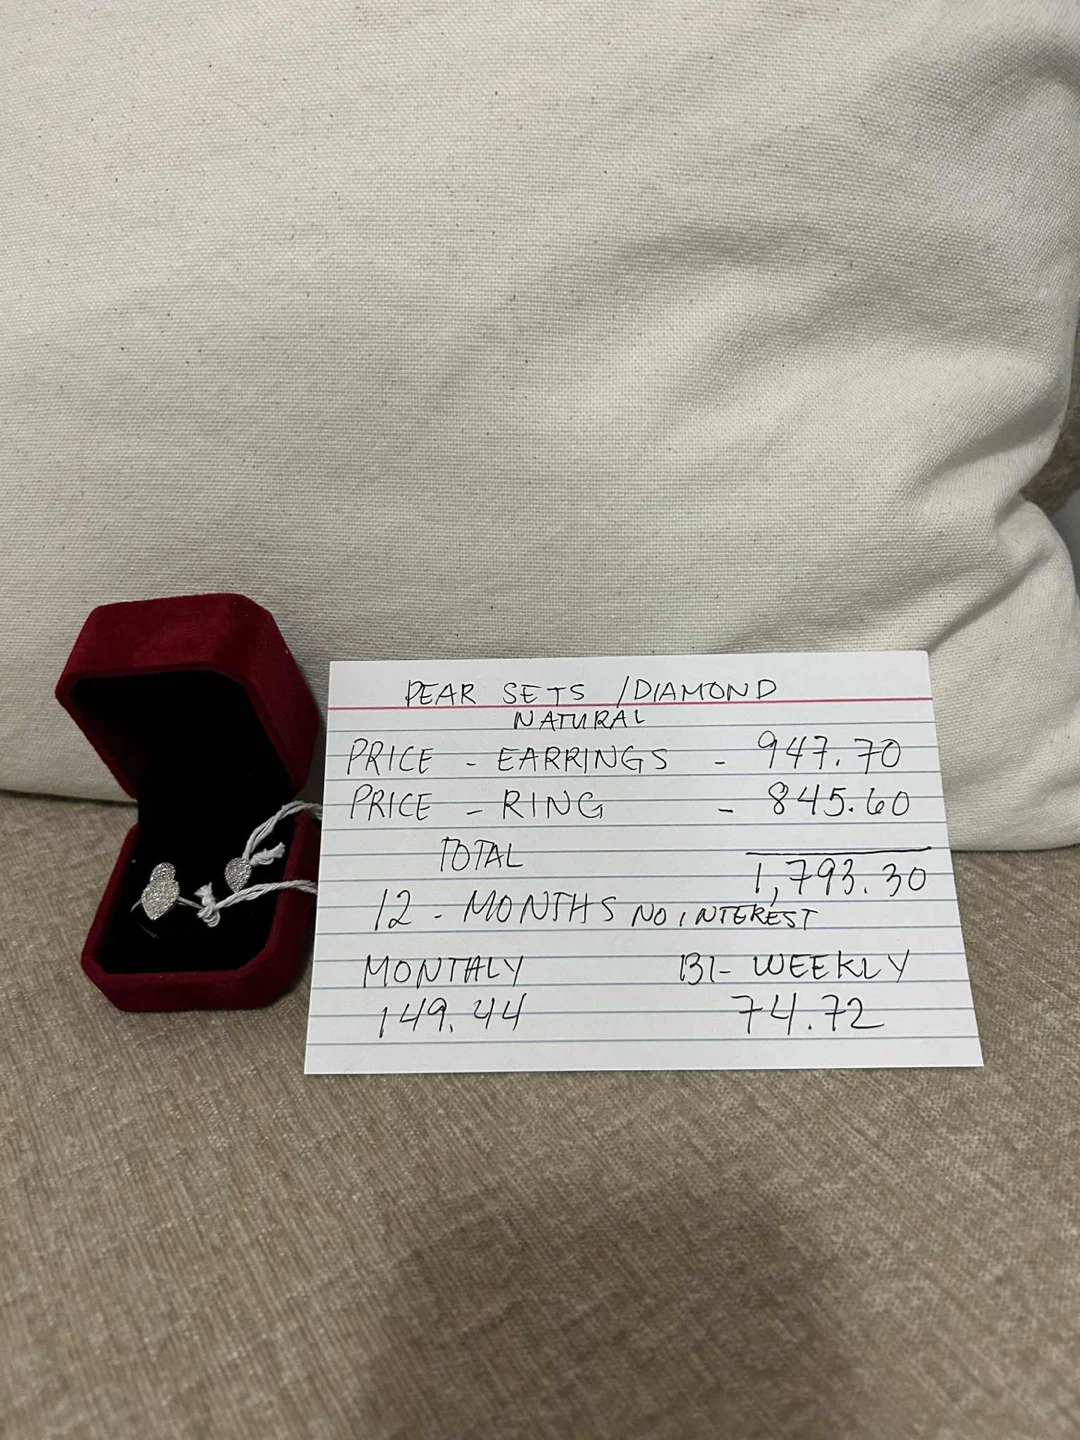 PEAR SETS / DIAMOND
NATURAL
PRICE - EARRINGS - 947.70
PRICE - RING - 845.60
TOTAL 1,793.30
12 - MONTHS NO INTEREST
MONTHLY BI-WEEKLY
149.44 74.72